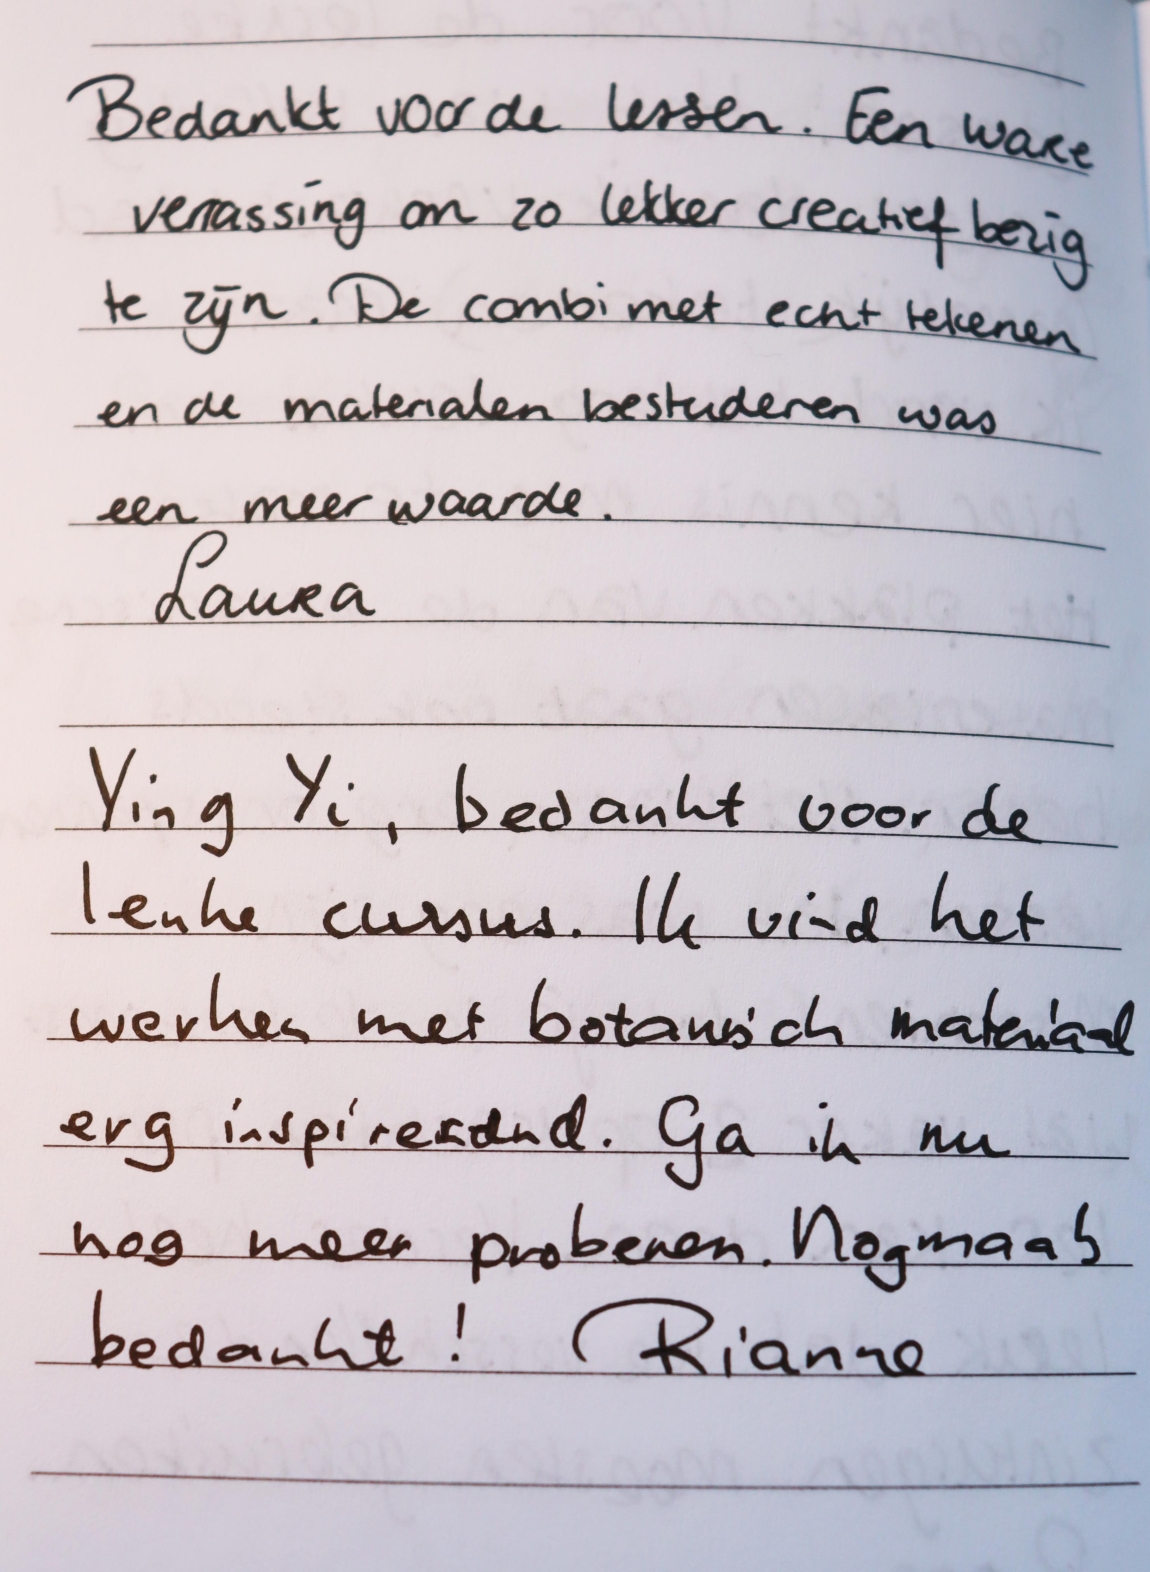 Bedankt voor de lessen. Een ware
verrassing om zo lekker creatief bezig
te zijn. De combi met echt tekenen
en de materialen bestuderen was
een meerwaarde.
Laura
Ying Yi, bedankt voor de
leuke cursus. Ik vind het
werken met botanisch materiaal
erg inspirerend. Ga ik nu
nog meer proberen. Nogmaals
bedankt! Rianne